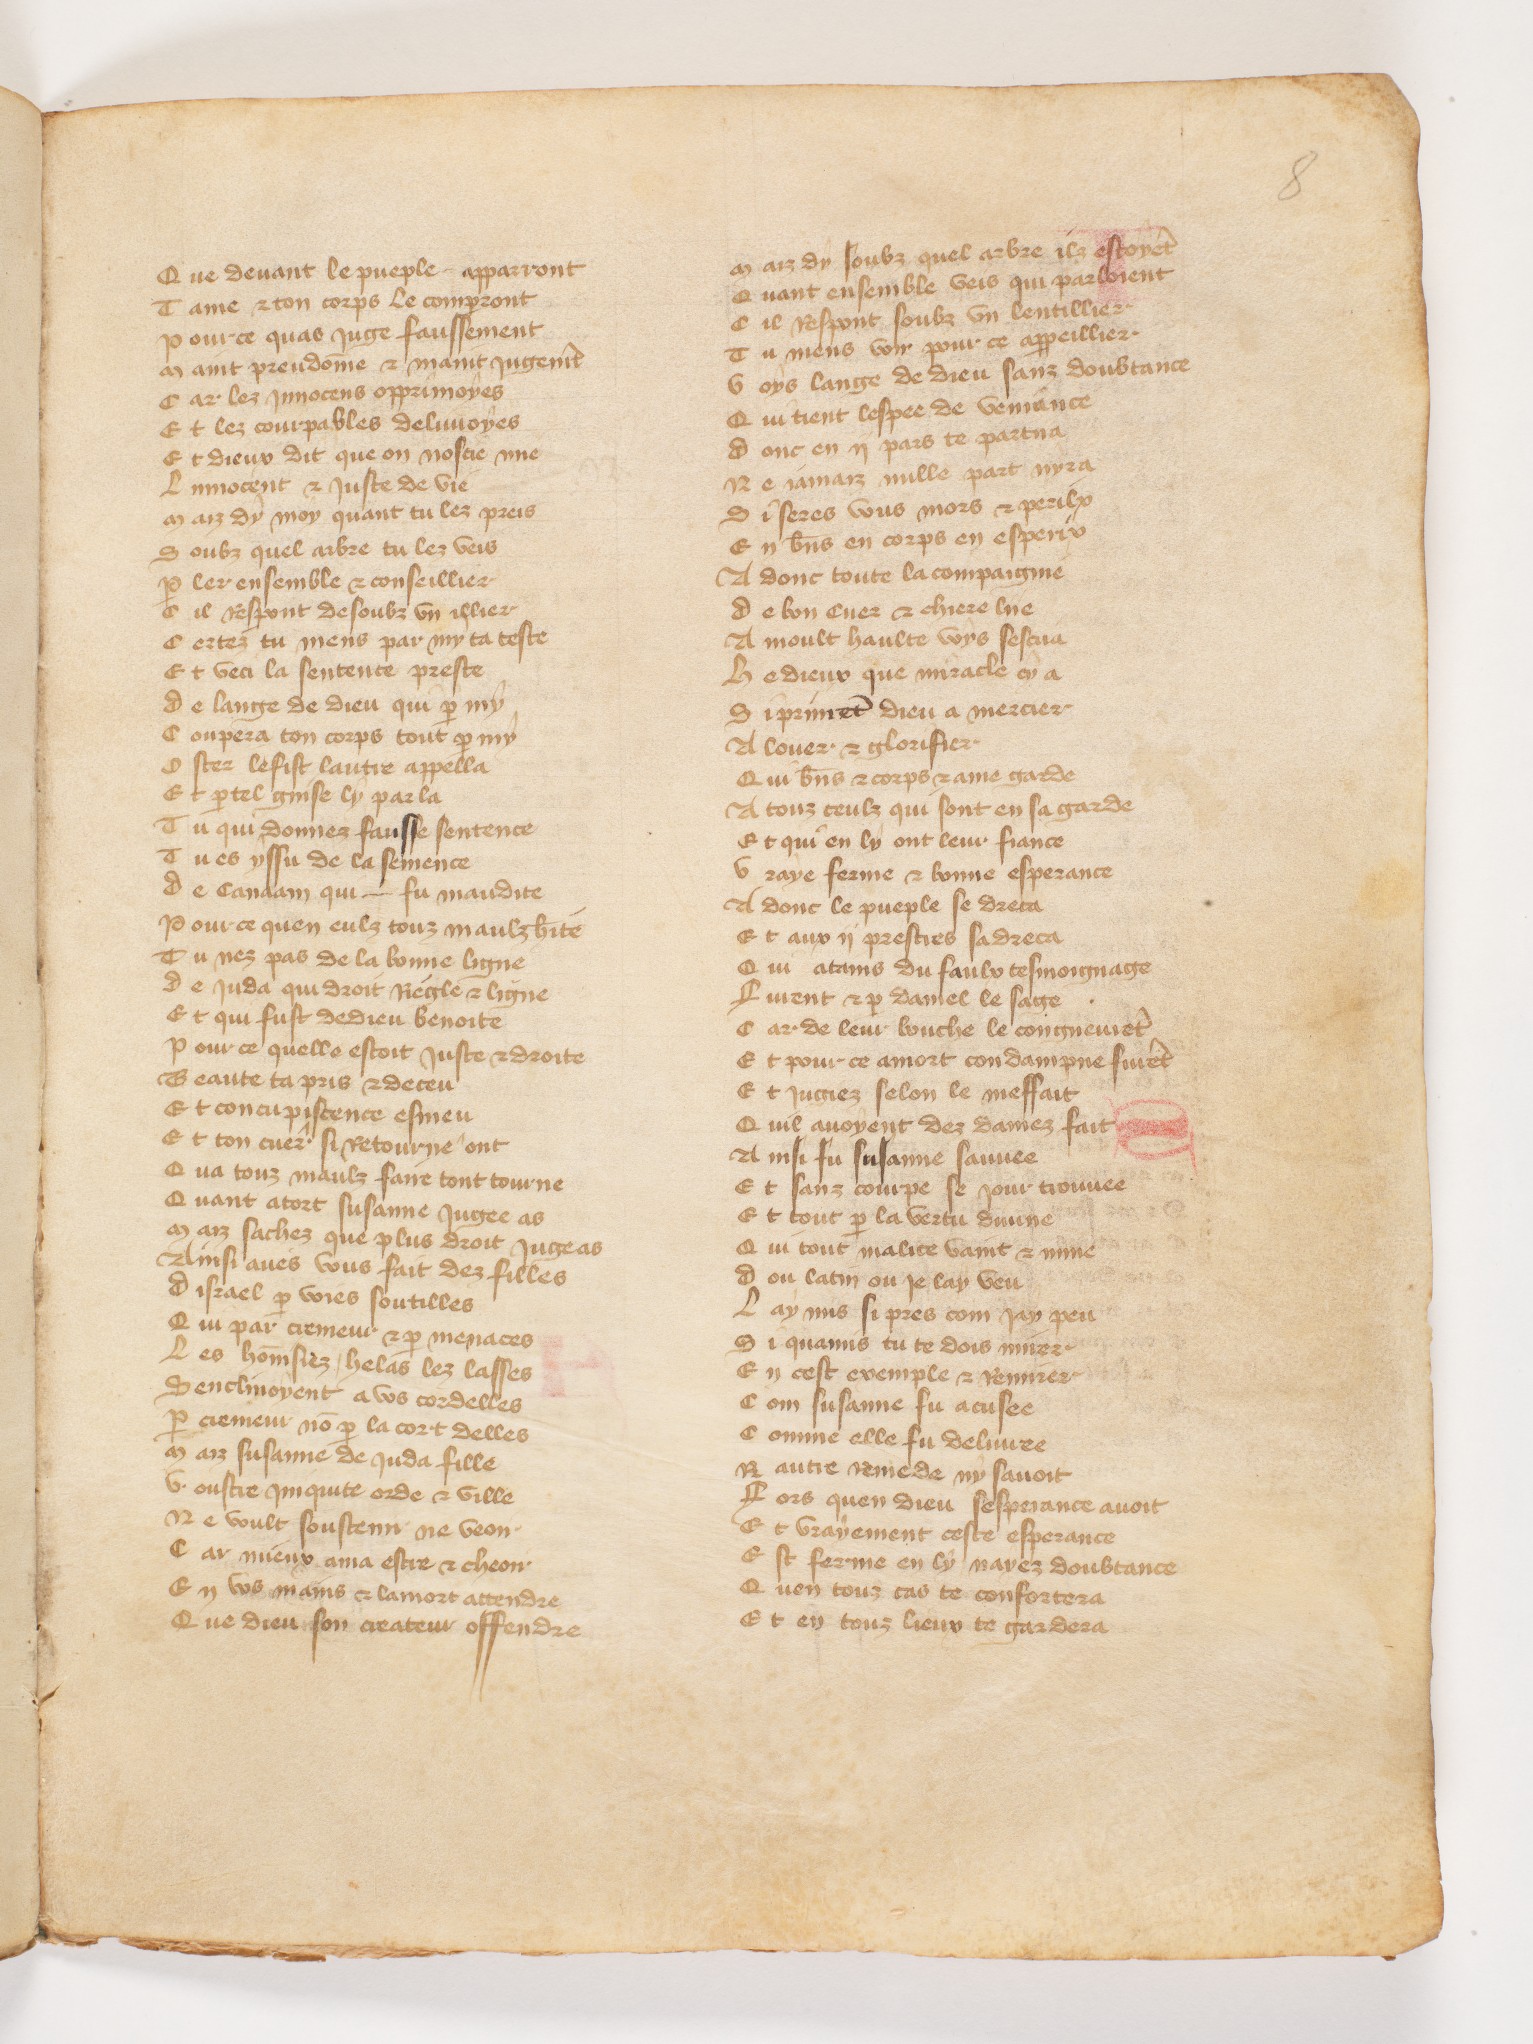 8
Que devant le pueple apparront
Tame & ton corps le comperront
Pour ce quas juge faussement
Maint preudōme & maint jugemt
Car lez innocens opprimoyes
Et lez courpables delivroyes
Et dieux dit que on nocie mie
Linnocent & juste de vie
Maiz dy moy quant tu lez preis
Soubz quel arbre tu lez veis
Pler ensemble & conseillier
Cil respont desoubz vn illier
Certez tu mens par my ta teste
Et veci la sentente preste
De lange de dieu qui p my
Coupera ton corps tout p my
Oster lefist lautre appella
Et ptel guise ly parla
Tu qui donnez fausse sentence
Tu es yssu de la semence
De Canaam qui fu maudite
Pour ce quen eulz touz maulz hite
Tu nez pas de la bonne ligne
De juda qui droit regle & ligne
Et qui fust dedieu benoite
Pour ce quelle estoit juste & droite
Beaute ta pris & deceu
Et concupiscence esmeu
Et ton cuer si retourne ont
Qua touz maulz faire tont tourne
Quant atort susanne jugee as
Maiz sachez que plus droit jugeas
Ainsi aues vous fait dez filles
Disrael p voies soutilles
Qui par cremeur & p menaces
Les hōmsiez helas lez lasses
Senclinoyent a vos cordelles
P cremeur nō p la cort delles
Maiz susanne de juda fille
Voustre iniquite orde & ville
Ne voult soustenir ne veoir
Car mieux ama estre & cheoir
En vos mains & lamort attendre
Que dieu son createur offendre
Maiz dy soubz quel arbre ilz estoyēt
Quant ensemble veis qui parloient
Cil respont soubz vn lentillier
Tu mens voir pour ce appeillier
Voys lange de dieu sanz doubtance
Qui tient lespee de veniance
Donc en ij pars te partira
Ne iamaiz nulle part nyra
Si seres vous mors & perilx
En bns en corps en esperix
Adonc toute la compaignie
De bon cuer & chiere lie
A moult haulte voys sescria
He dieux que miracle cy a
Si prinrēt dieu a mercier
A louer & glorifier
Qui bns & corps & ame garde
A touz ceulz qui sont en sa garde
Et qui en ly ont leur fiance
Vraye ferme & bonne esperance
Adonc le pueple se dreca
Et aux ij prestres sadreca
Qui atains du faulx tesmoignage
Furent & p daniel le sage
Car de leur bouche le congneurēt
Et pour ce amort condampne furēt
Et jugiez selon le meffait
Quil auoyent dez damez fait
Ainsi fu susanne sauuee
Et sanz courpe se jour trouuee
Et tout p la vertu diuine
Qui tout malice vaint & mine
Dou latin ou je lay veu
Lay mis si pres com jay peu
Si quamis tu te dois mirer
En cest exemple & remirer
Com susanne fu acusee
Comme elle fu deliuree
Nautre remede ny sauoit
Fors quen dieu sesperance auoit
Et vrayement ceste esperance
Est ferme en ly nayez doubtance
Quen touz cas te confortera
Et en touz lieux te gardera